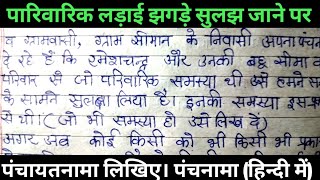 पारिवारिक लड़ाई झगड़े सुलझ जाने पर
व ग्रामवासी, ग्राम श्रीमान के निवासी अपना पंचना
दे रहे हैं कि रमेशचन्द्र और उनकी बहू सीमा व
परिवार से जो परिवारिक समस्या थी उसे हमने सब
के सामने सुलझा लिया है। इनकी समस्या इस प्र
से थी। (जो भी समस्या हो उसे लिख दे)
अगर अब कोई किसी को भी किसी भी प्रका
पंचायतनामा लिखिए। पंचनामा (हिन्दी में)